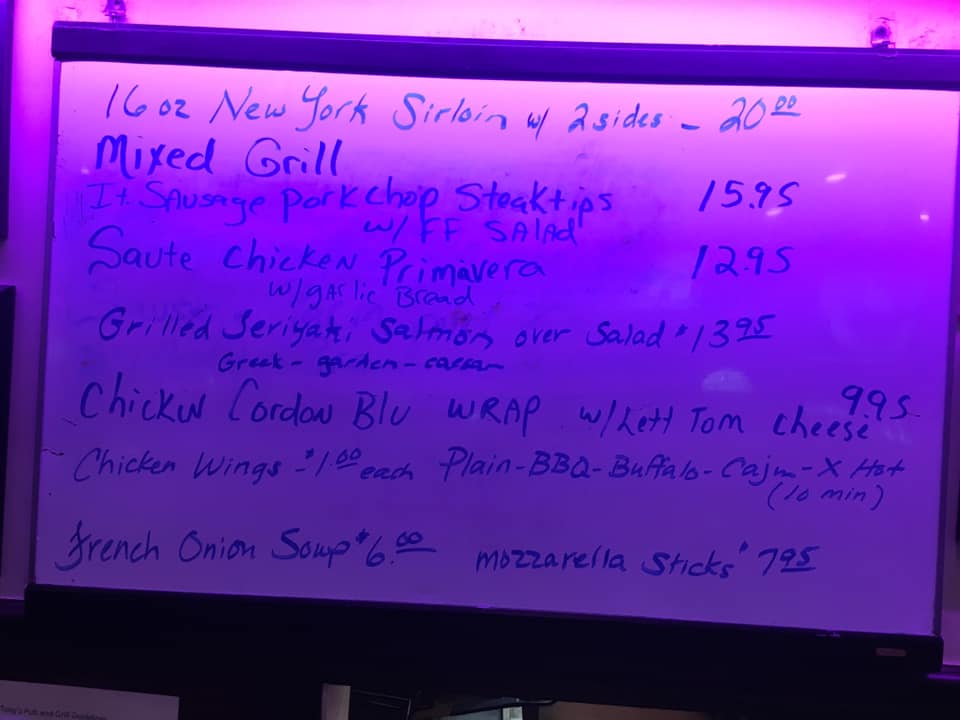 16 oz New York Sirloin w/ 2 sides - 20 00
Mixed Grill
It. Sausage Pork chop Steaktips 15.95
w/ FF SALAD
Saute Chicken Primavera 12.95
w/garlic Bread
Grilled Teriyaki Salmon over Salad $13 95
Greek - garden - caesar
Chicken Cordon Blu WRAP w/ Lett Tom cheese 9.95
Chicken Wings - $1.00 each Plain - BBQ - Buffalo - Cajun - X Hot
(10 min)
French Onion Soup $6.00 mozzarella Sticks $7 95